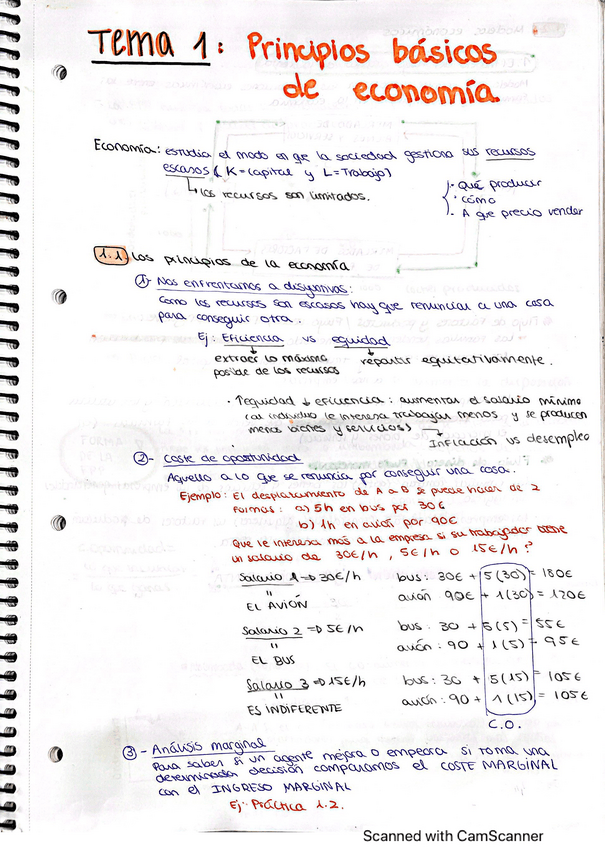 TEMA 1: Principios básicos
de economía
Economía: estudia el modo en que la sociedad gestiona sus recursos
escasos (K=Capital y L=Trabajo)
↳ los recursos son limitados.
- Qué producir
- cómo
- A que precio vender
1.1 Los principios de la economía
1- Nos enfrentamos a disyuntivas:
Como los recursos son escasos hay que renunciar a una cosa
para conseguir otra.
Ej: Eficiencia vs equidad
extraer lo máximo
posible de los recursos
repartir equitativamente.
· ↑equidad ↓ eficiencia: aumentar el salario mínimo
(al individuo le interesa trabajar menos y se producen
menos bienes y servicios)
→ Inflación vs desempleo
2- Coste de oportunidad
Aquello a lo que se renuncia por conseguir una cosa.
Ejemplo: El desplazamiento de A a B se puede hacer de 2
formas: a) 5h en bus por 30€
b) 1h en avión por 90€
Que le interesa más a la empresa si su trabajador tiene
un salario de 30€/h, 5€/h o 15€/h?
Salario 1 ⇒ 30€/h
"
EL AVIÓN
bus: 30€ + 5(30) = 180€
avión: 90€ + 1(30) = 120€
Salario 2 ⇒ 5€/h
"
EL BUS
bus: 30 + 5(5) = 55€
avión: 90 + 1(5) - 95€
Salario 3 ⇒ 15€/h
"
ES INDIFERENTE
bus: 30 + 5(15) = 105€
avión: 90 + 1(15) = 105€
C.O.
3- Análisis marginal
Para saber si un agente mejora o empeora si toma una
determinada decisión comparamos el COSTE MARGINAL
con el INGRESO MARGINAL
Ej: Práctica 1.2.
Scanned with CamScanner